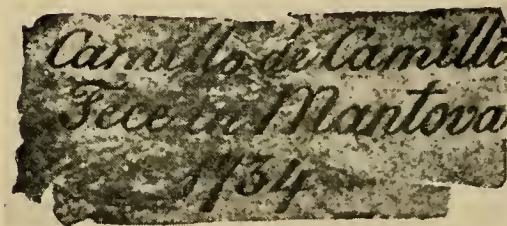 Camillo de Camilli
Fece in Mantova
1734